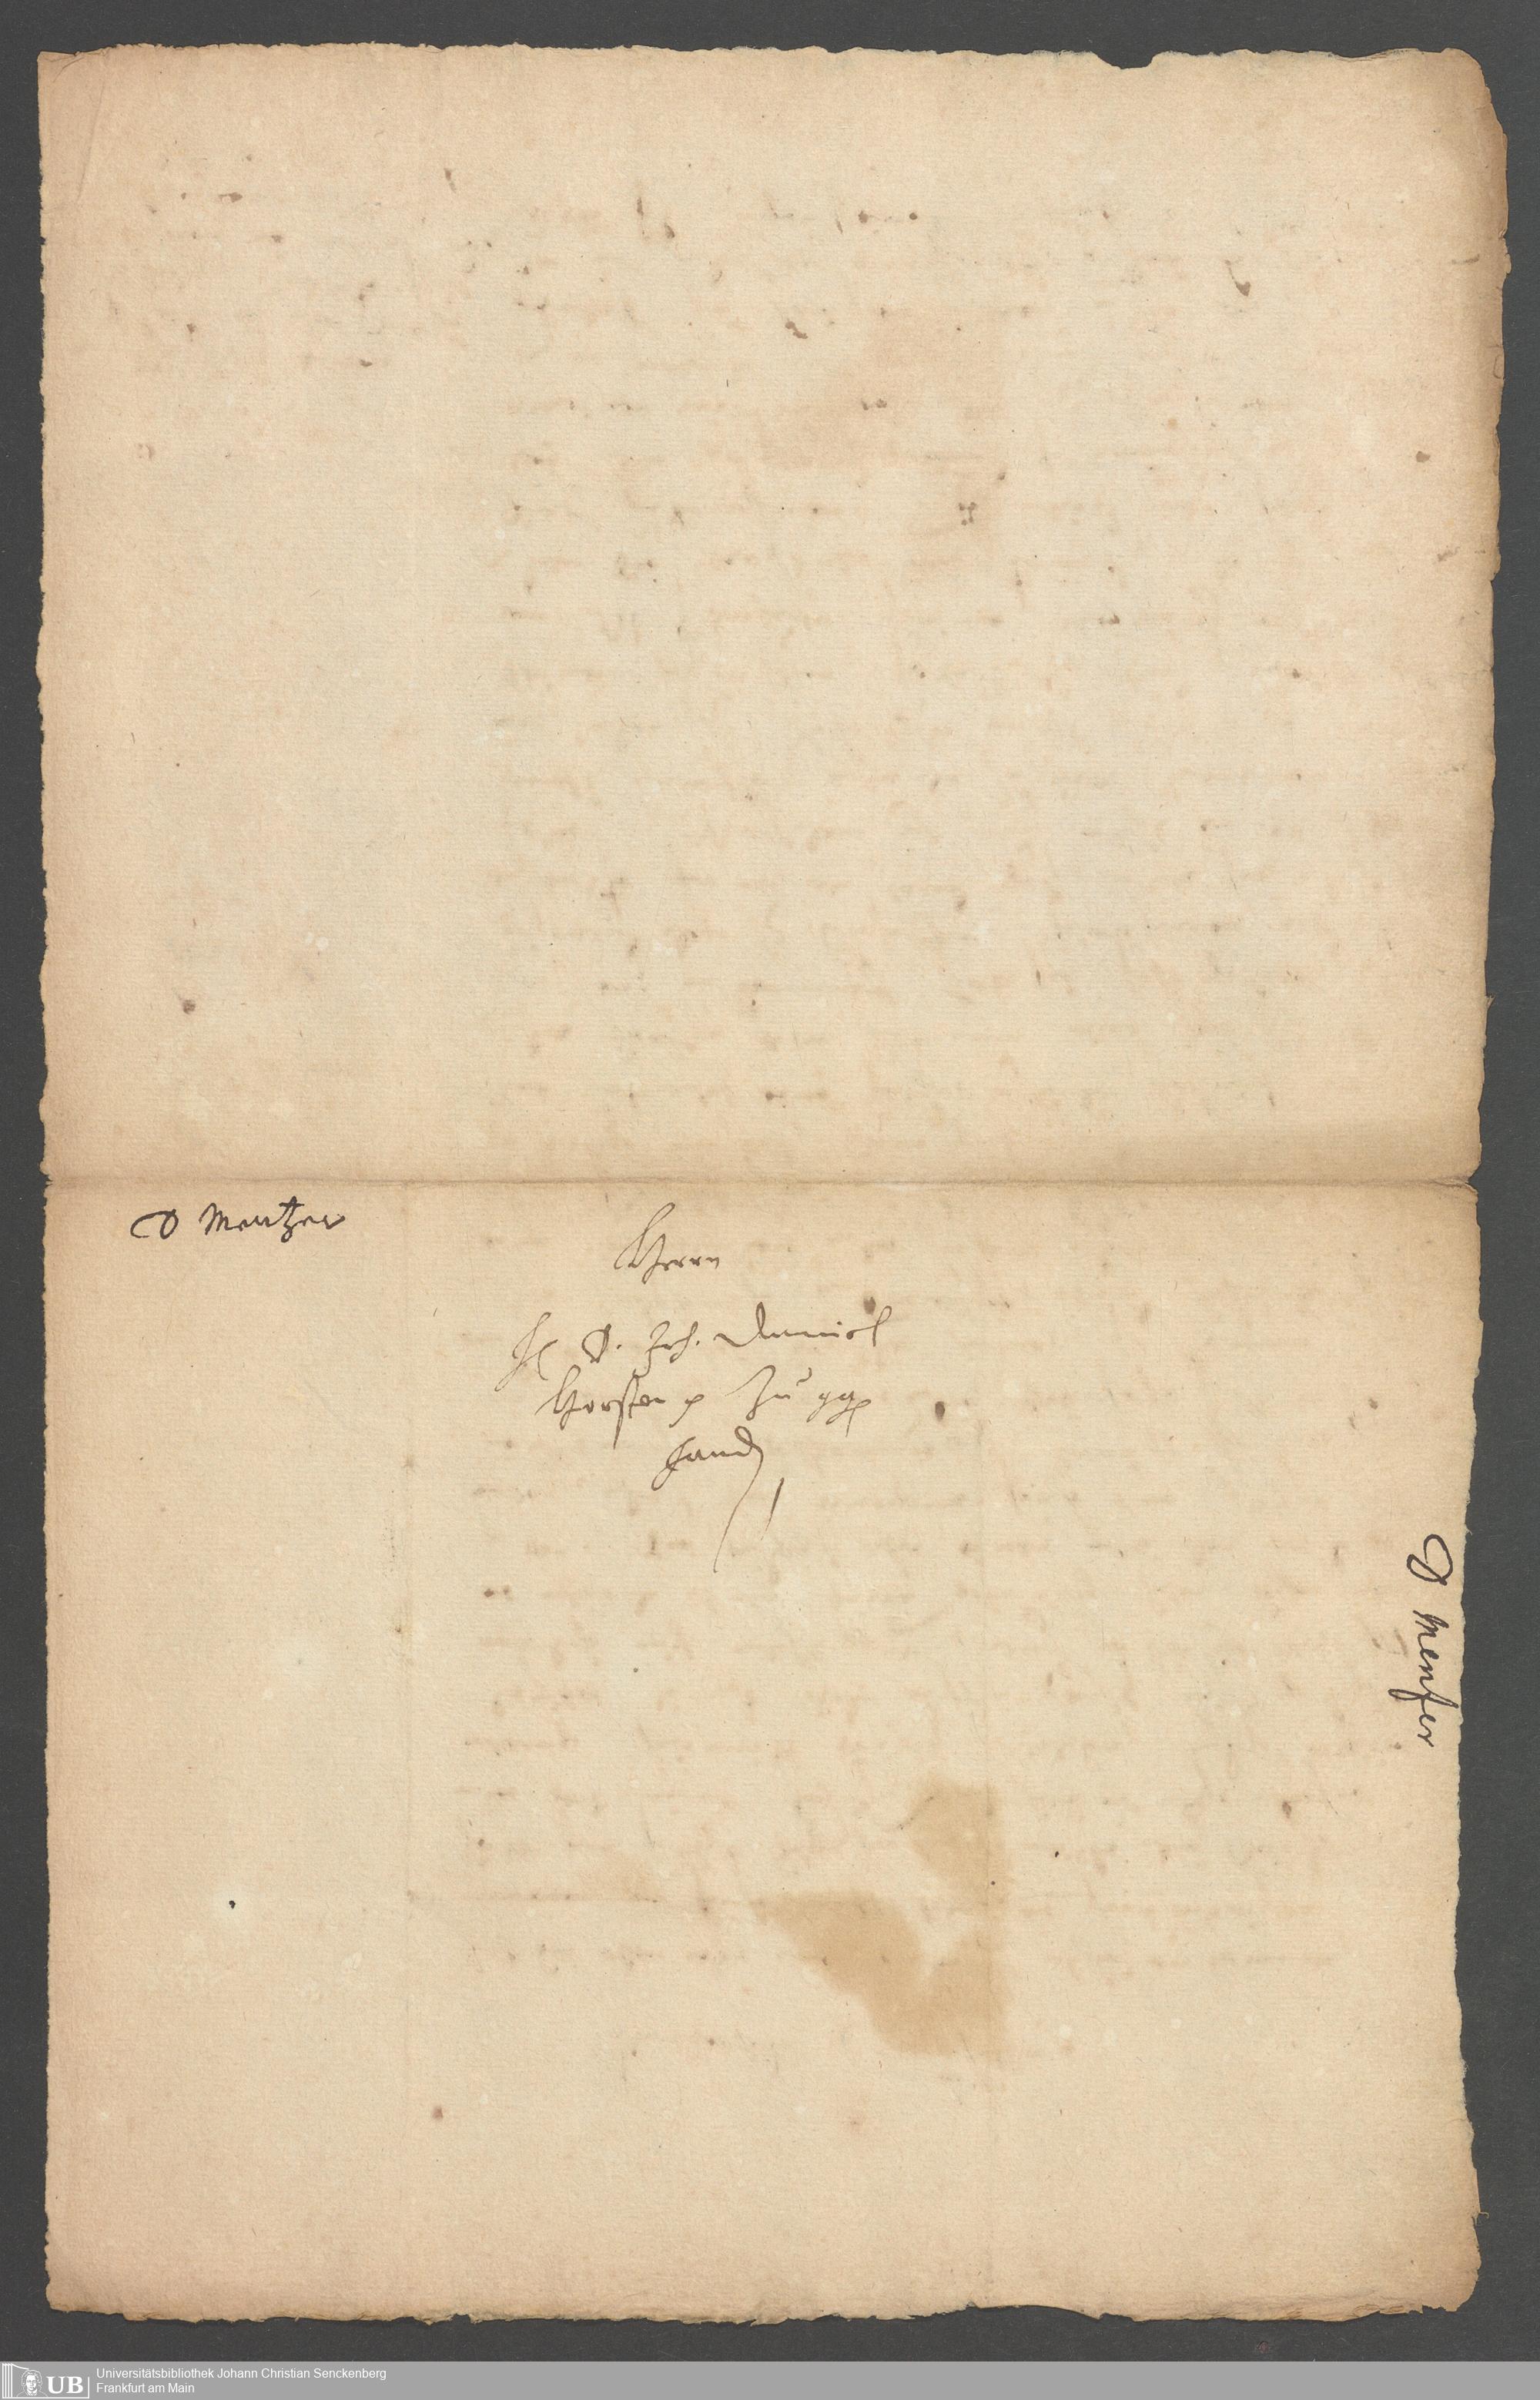 D Mentzer
Herrn
H D. Joh. Daniel
Horsten p Zu gg
handen
D Menzer
Universitätsbibliothek Johann Christian Senckenberg
Frankfurt am Main
UB